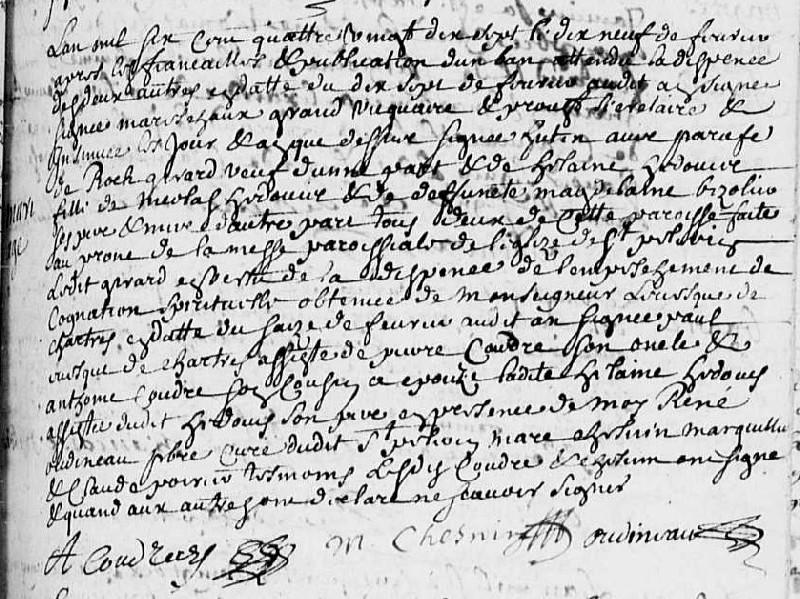 Lan mil six cens quattre vingt dix sept le dix neuf de feurier
apres les fiancailles & publication dun ban attendu la dispence
des deux autres en datte du dix sept de feurier audit an signee
signee marechaux grand vicquaire & prouts Secretaire &
Insinuee les Jour & an que dessus signee hutin auec parafe
de Roch girard veuf dunne part & de helaine hedouis
fille de nicolas hedouis & de deffuncte magdelaine
ses pere & mere dautre part tous deux de cette paroisse faite
mari
au prone de la messe paroissiale de leglize de St
age
Ledit girard en vertu de la dispence de lempeschement de
Cognation spirituelle obtenue de monseigneur Leuesque de
chartres en datte du saize de feurier audit an signee paul
euesque de chartres assiste de pierre Coudre son oncle &
anthome Coudre son Cousin a epouze ladite helaine hedouis
assistee dudit hedouis son pere en presence de moy René
oudineau pbre Curé dudit St mare chesnin marguillier
& Claude poirier tesmoins Lesdis Coudre & chesnin ont signe
& quand aux autres ont declare ne scauoir signer
A Coudre M Chesnin oudineau